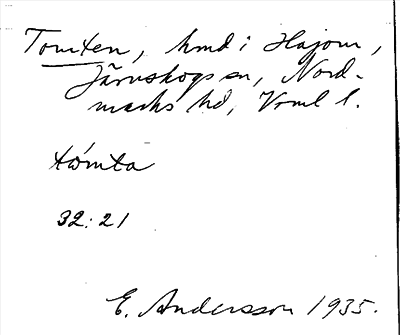 Tomten, hmd i Hajom,
Järnskogs sn, Nord-
marks hd, Vrml l.
tómta
32:21
E. Andersson 1935.